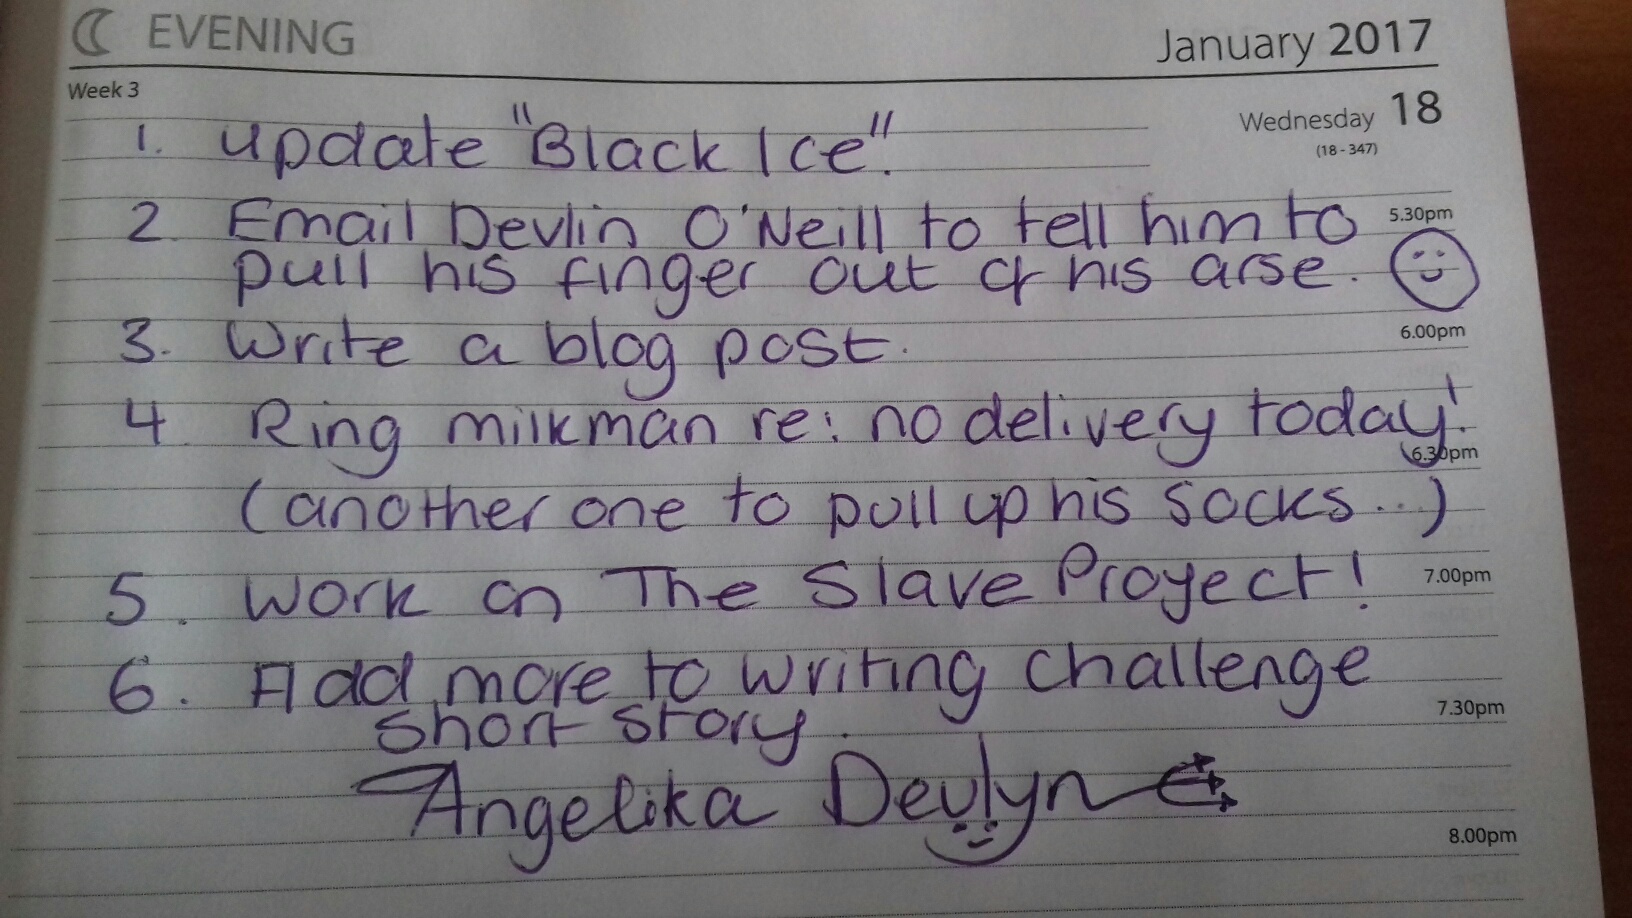 EVENING
January 2017
Week 3
Wednesday 18
(18 - 347)
1. update "Black Ice".
2. Email Devlin O'Neill to tell him to
5.30pm
pull his finger out of his arse.
3. Write a blog post.
6.00pm
4 Ring milkman re: no delivery today!
6.30pm
(another one to pull up his socks...)
5. Work on The Slave Proyect!
7.00pm
6. Add more to writing challenge
short story.
7.30pm
Angelika Devlyn
8.00pm